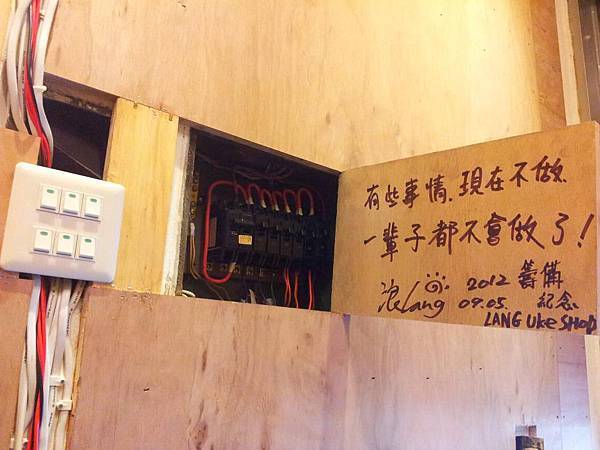 有些事情，現在不做，
一輩子都不會做了！
浪Lang 2012 籌備
09.05. 紀念
LANG Uke SHOP